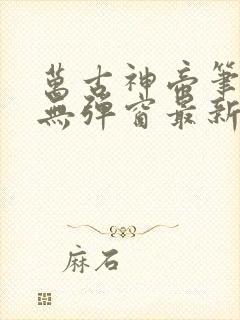 萬古神帝筆
無彈窗最新
麻石